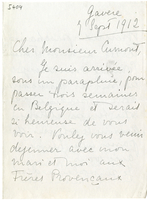 5404
Gavere
7 Sept 1912
Cher Monsieur Cumont,
Je suis arrivée
sous un parapluie, pour
passer trois semaines
en Belgique et serais
si heureuse de vous
voir. Voulez vous venir
dejeuner avec mon
mari et moi aux
Frères Provençaux